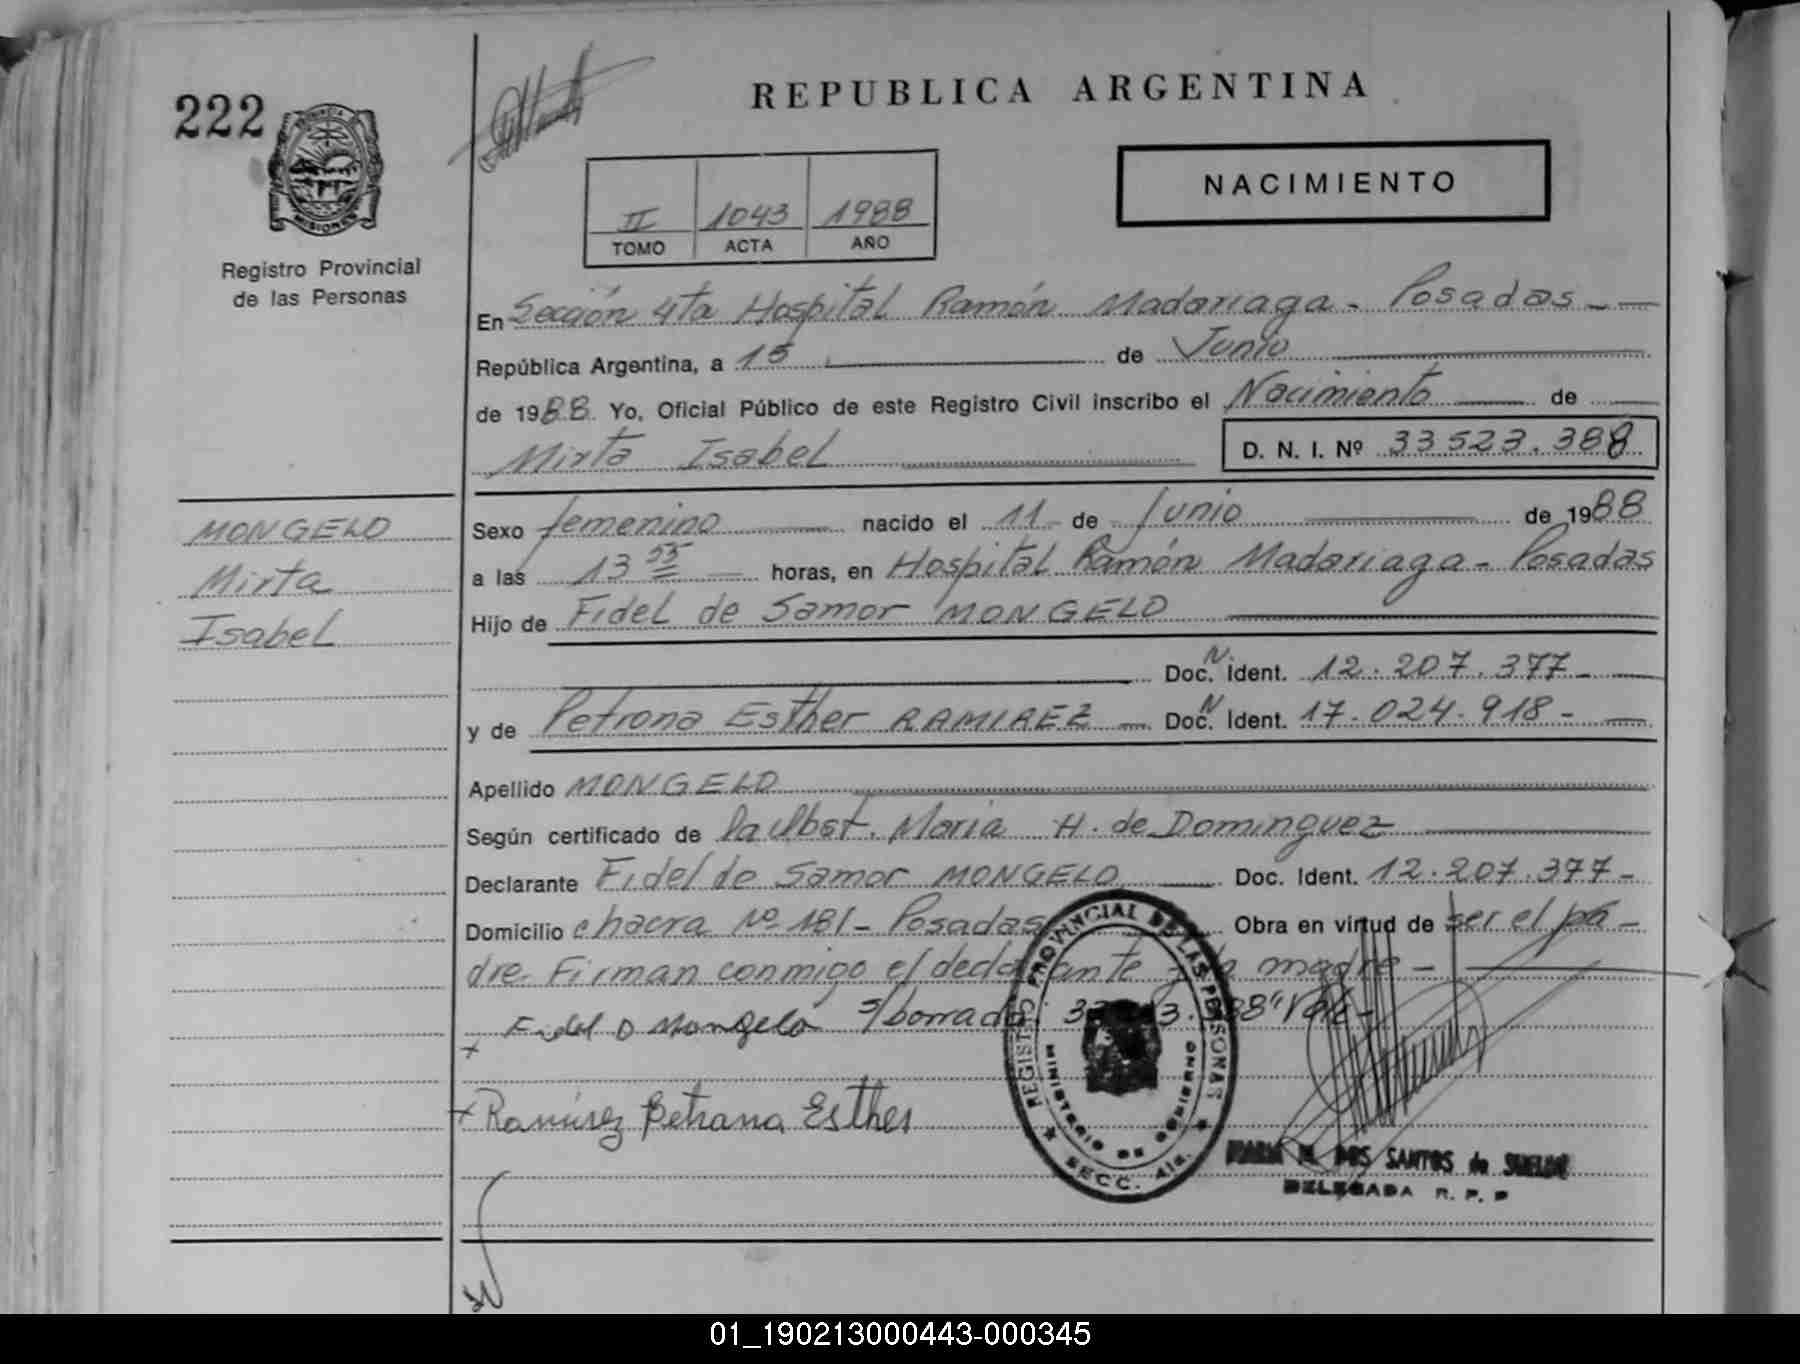 222
REPUBLICA ARGENTINA
PROVINCIA
MISIONES
Registro Provincial
de las Personas
II 1043 1988
TOMO ACTA AÑO
NACIMIENTO
En Sección 4ta Hospital Ramón Madariaga - Posadas -
República Argentina, a 15 de Junio
de 1988. Yo, Oficial Público de este Registro Civil inscribo el Nacimiento de
Mirta Isabel D. N. I. Nº 33523.388
MONGELO
Mirta
Isabel
Sexo femenino nacido el 11 de Junio de 1988
a las 13 55 horas, en Hospital Ramón Madariaga - Posadas
Hijo de Fidel de Samor MONGELO
Doc. N. Ident. 12.207.377-
y de Petrona Esther RAMIREZ - Doc. N Ident. 17.024.918-
Apellido MONGELO
Según certificado de la Obst. Maria H. de Dominguez
Declarante Fidel de Samor MONGELO Doc. Ident. 12.207.377-
Domicilio chacra Nº 181 - Posadas Obra en virtud de ser el pa-
dre. Firman conmigo el declarante y la madre -
Fidel D Mongelo S/borrado: 33 3.388" Vale-
+
+ Ramírez Petrona Esther
REGISTRO PROVINCIAL DE LAS PERSONAS
MINISTERIO DE GOBIERNO
SECC. 4ta.
DOS SANTOS de
DELEGADA R. P. P
01_190213000443-000345